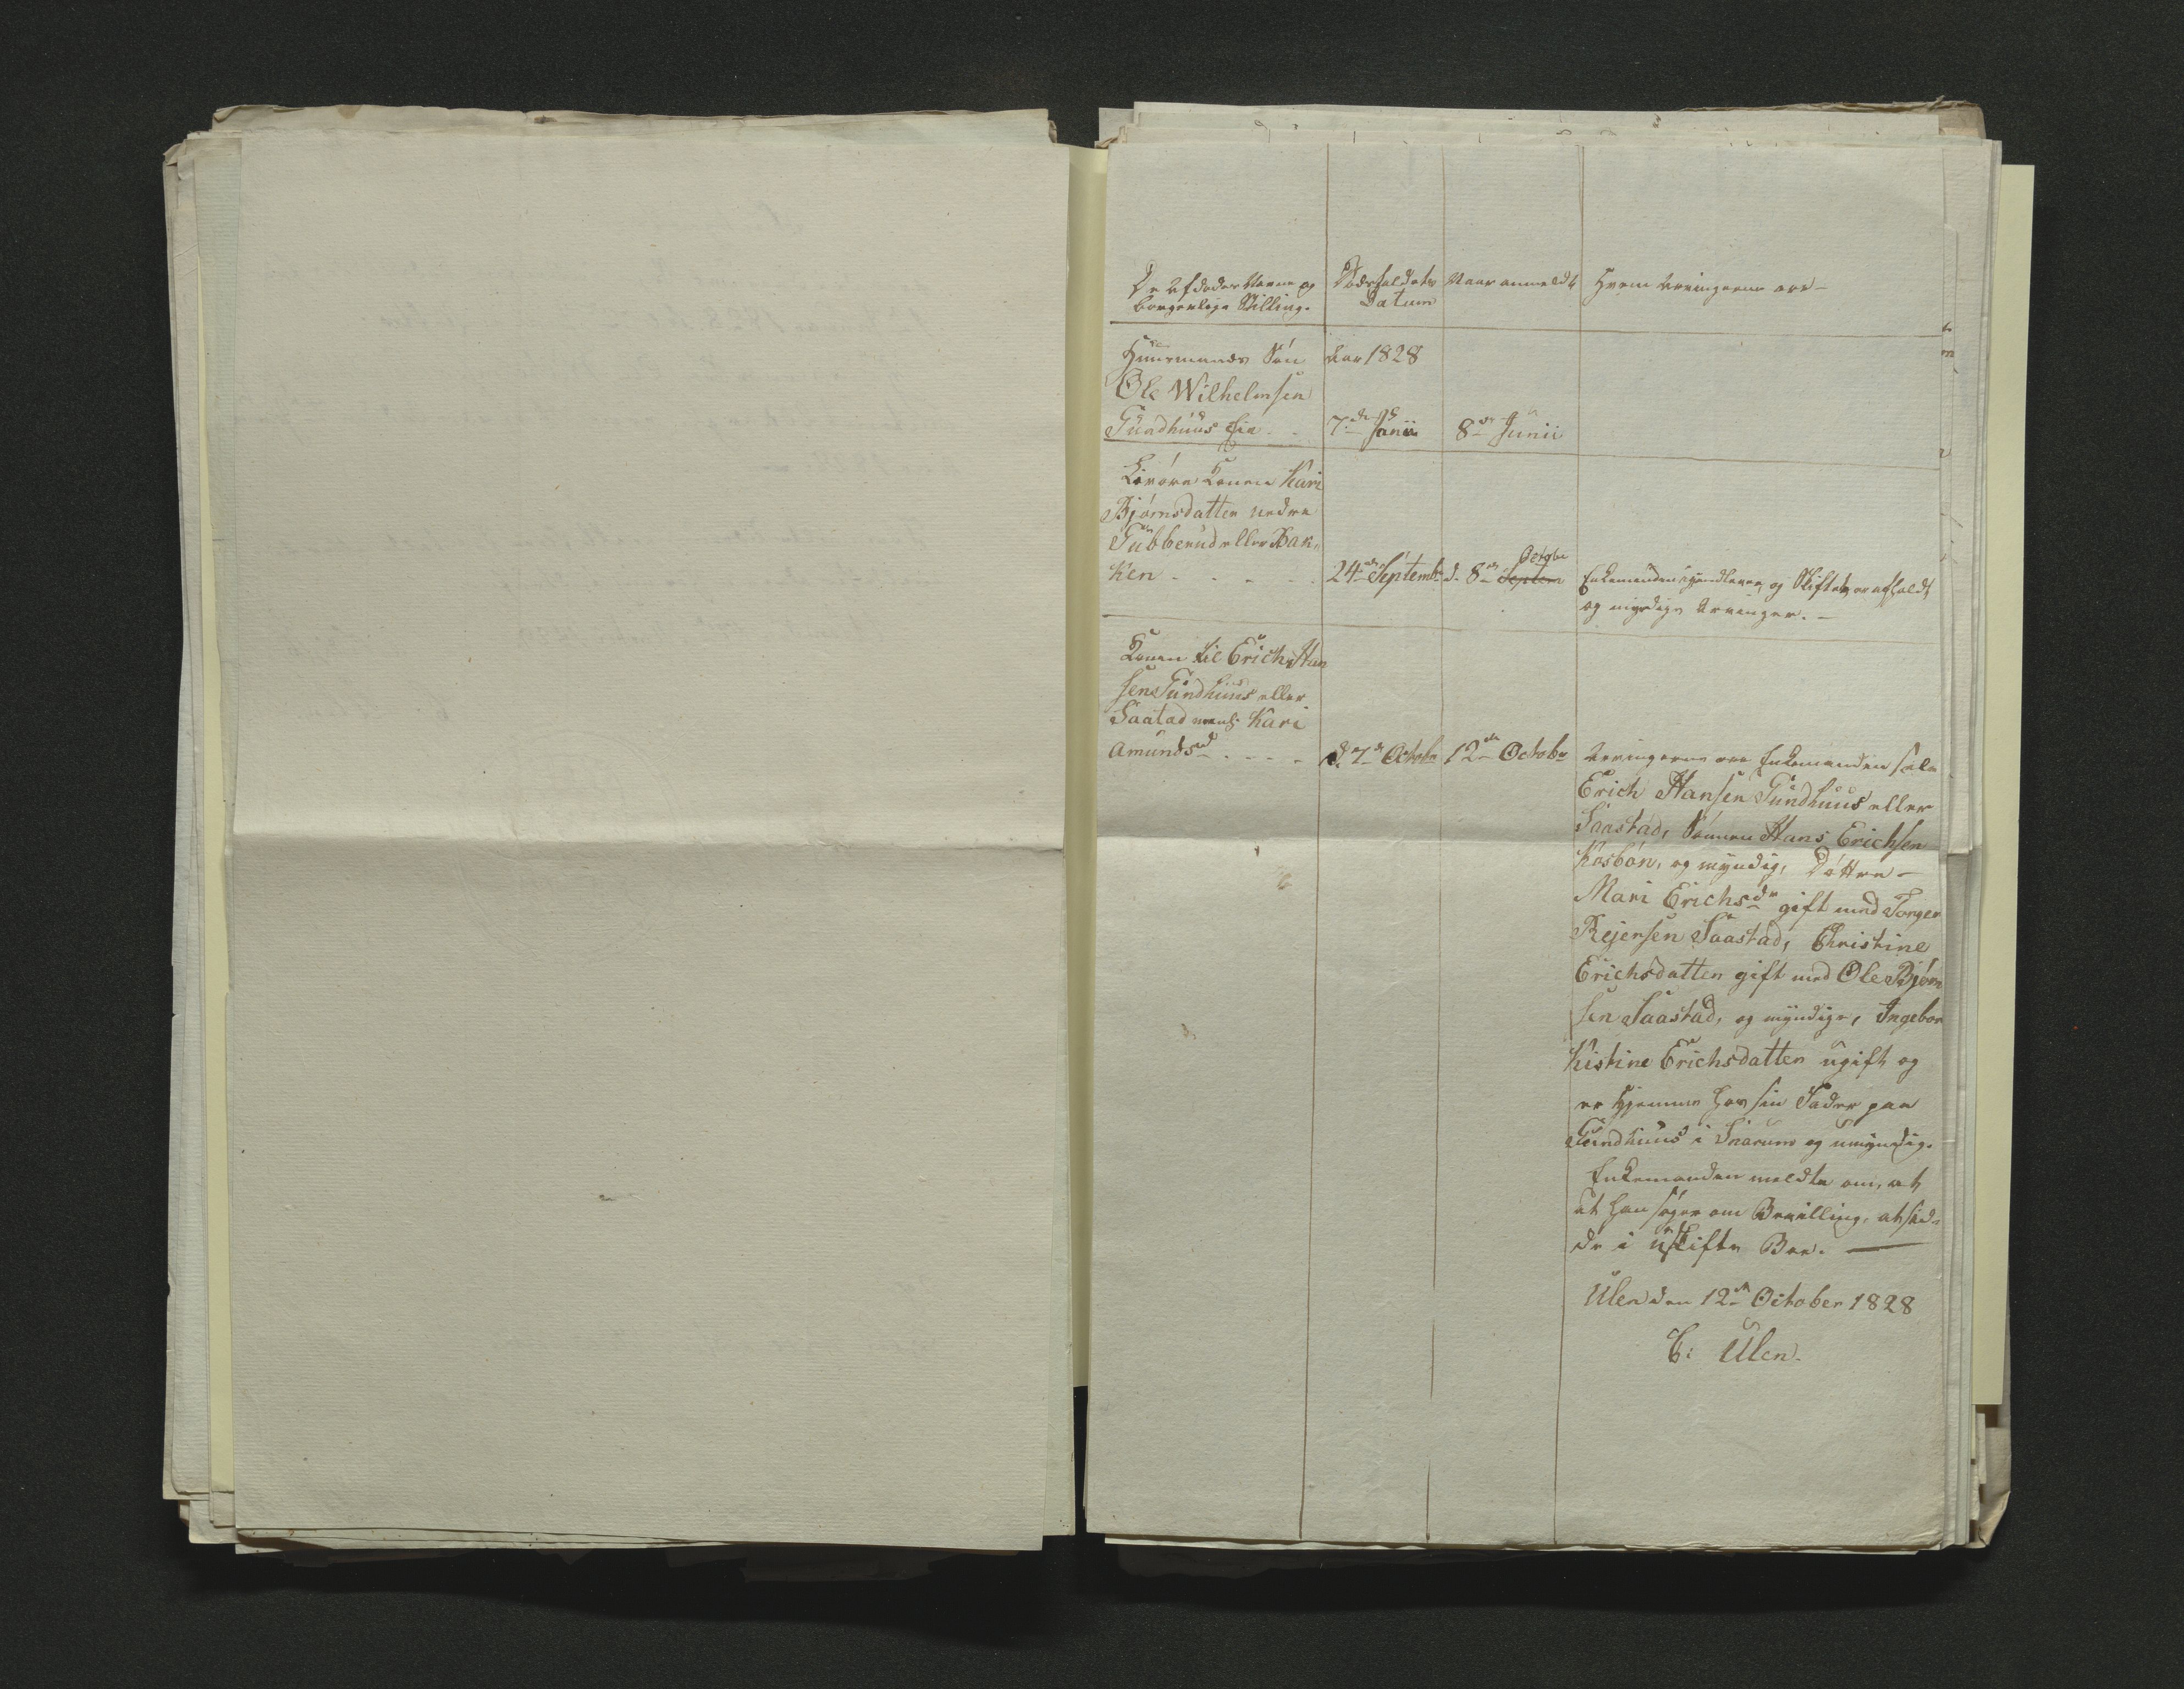 De Afdødes Navne og
borgerlige Stilling.
Dødsfaldets
Datum
Naar anmeldt
Hvem Arvingerne ere –
Huusmands Søn
Ole Wilhelmsen
Tundhuus Eie
Aar 1828
7de Junii
8de Junii
Konen Kari
Bjørnsdatter nedre
Tubberud eller Bak-
ken
24de Septembr
d. 8de Septem
Octobr
Enkemanden og Skiftet er afholdt
og myndige Arvinger. –
Konen til Erich Han
sen Tundhuus eller
Saatad navnl: Kari
Amundsd
d. 7de Octobr
12de Octobr
Arvingerne ere Enkemanden selv
Erich Hansen Tundhuus eller
Saastad, Sønnen Hans Erichsen
Kosbøn, og myndig, Døttre –
Mari Erichsdr gift med Torger
Rejersen Saastad, Christine
Erichsdatter gift med Ole Bjørn
sen Saastad, og myndige, Ingebor
Kistine Erichsdatter ugift og
er hjemme hos sin Fader paa
Tundhuus i Snarum og umyndig.
Enkemanden meldte om, at
at han søger om Bevilling, at sid-
de i uskifte Boe.
Ulen den 12de October 1828
E: Ulen